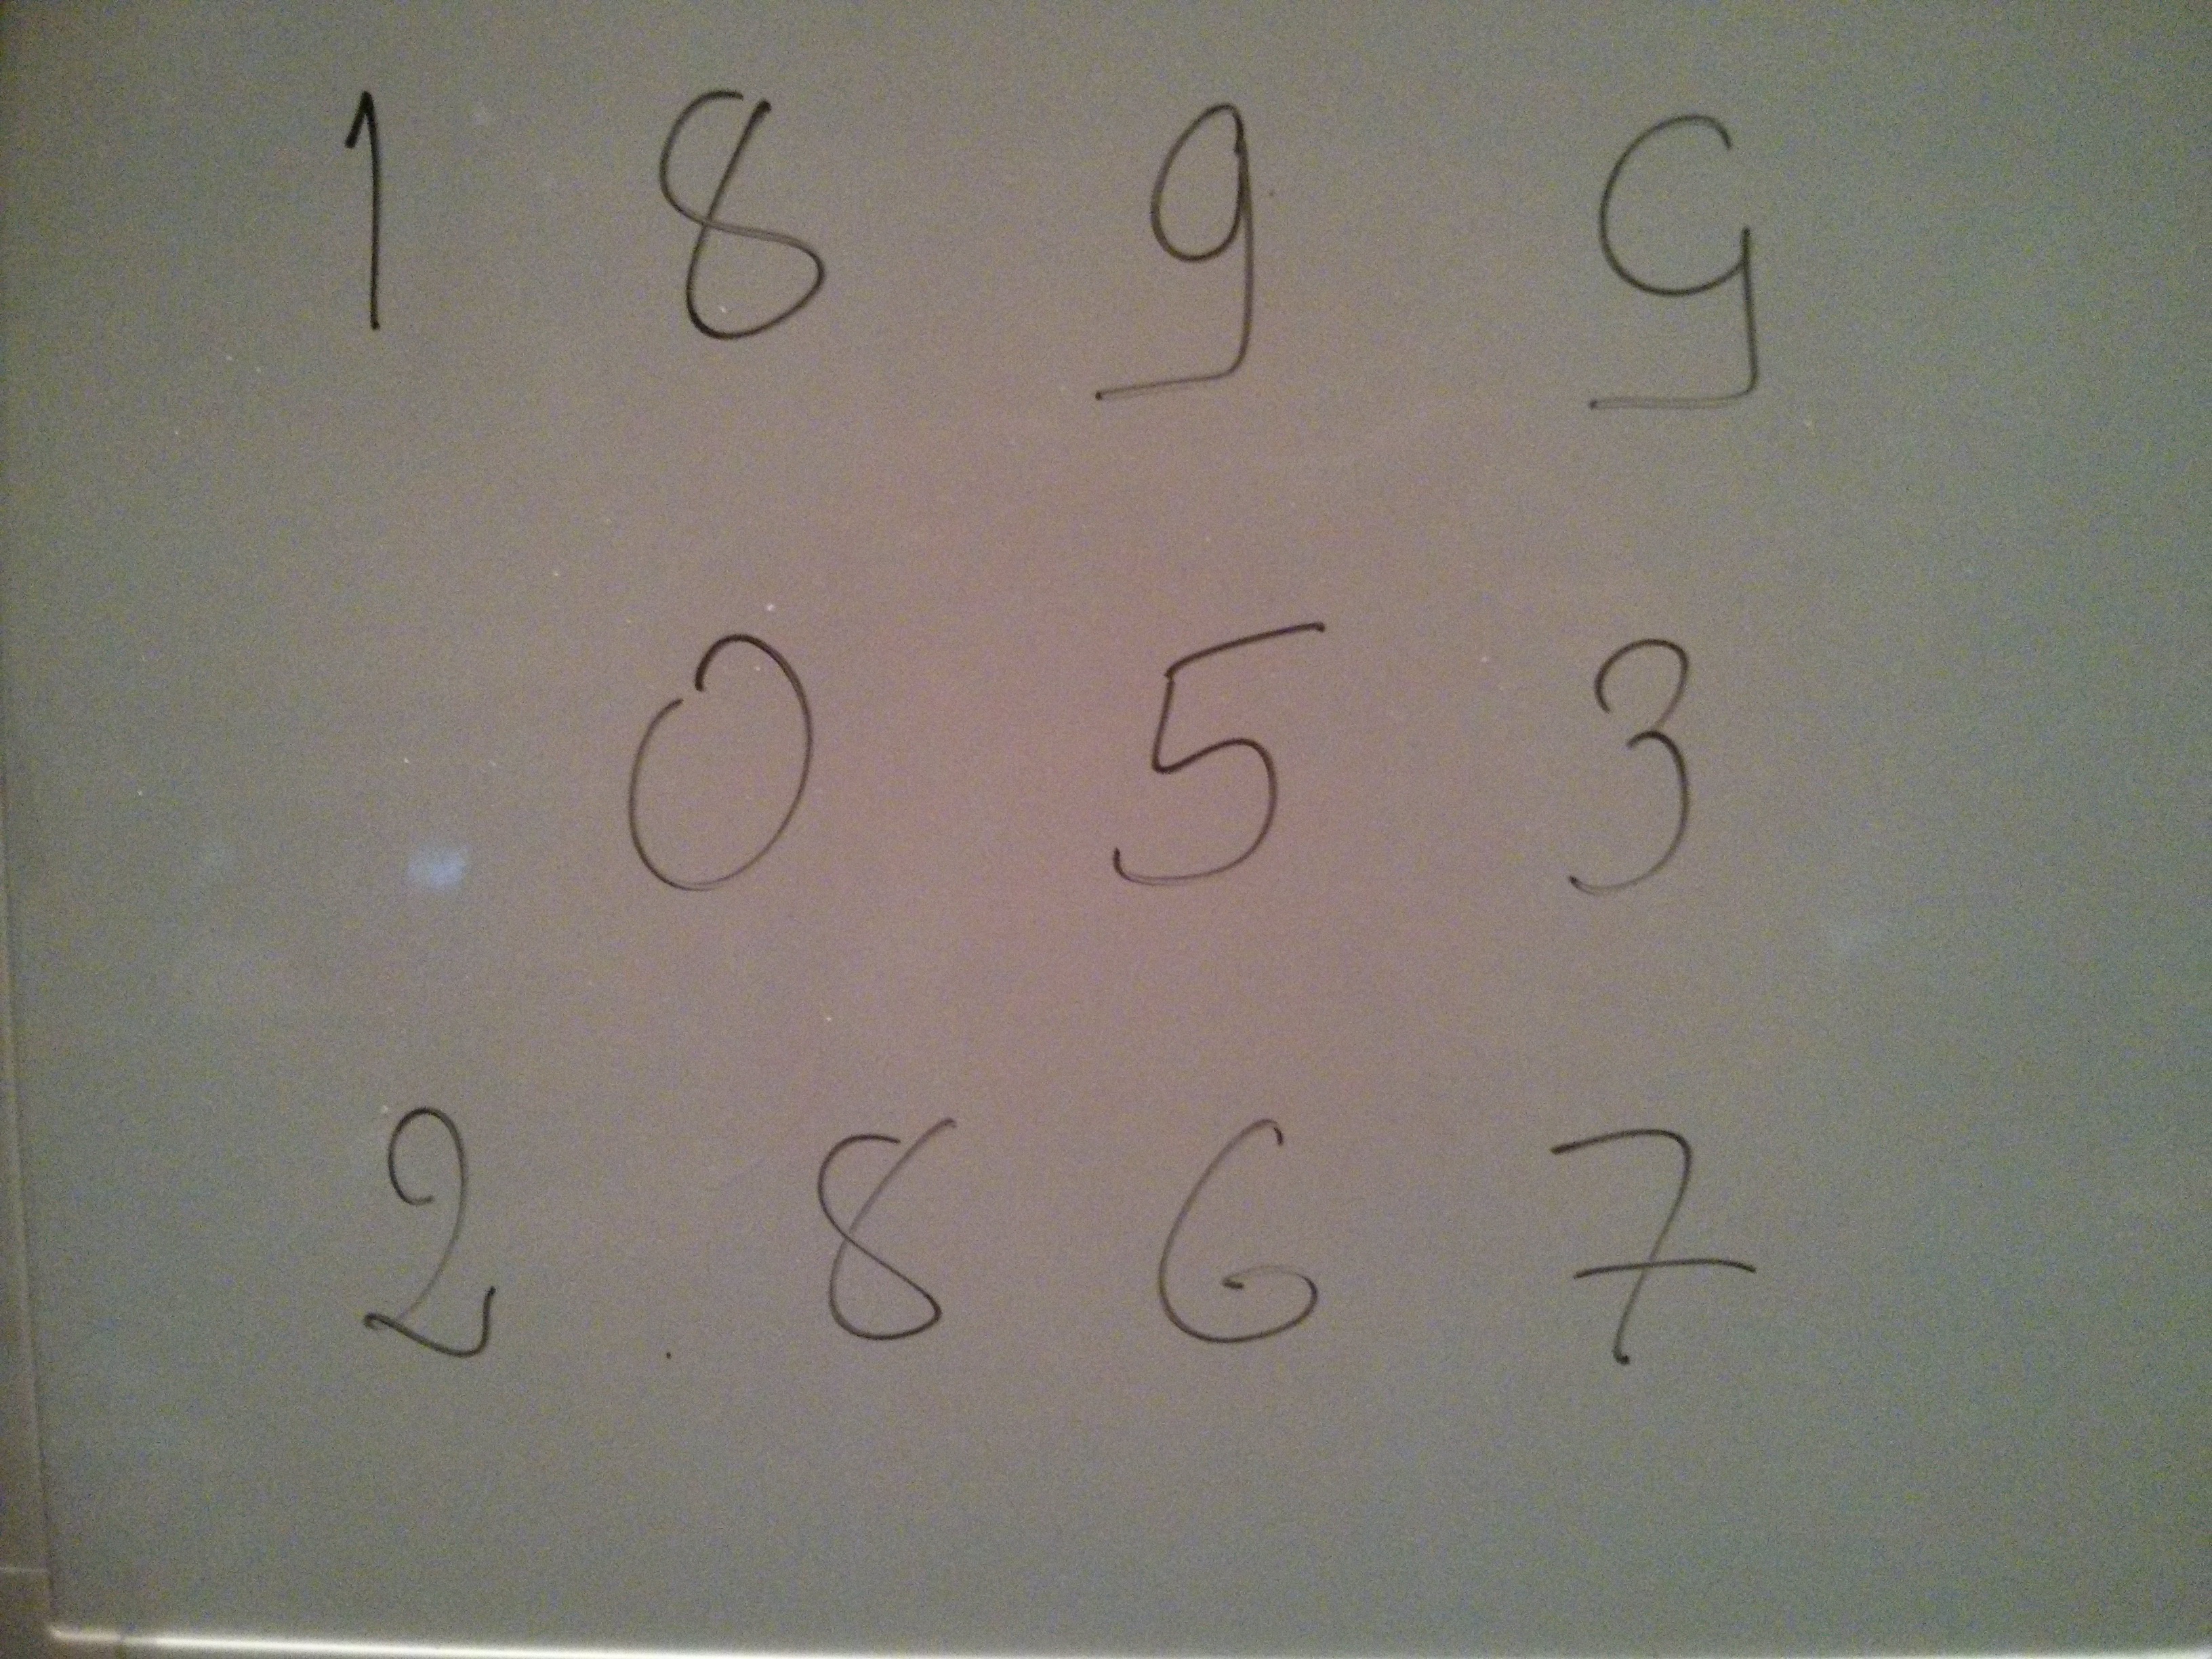 1 8 9 9
0 5 3
2 8 6 7